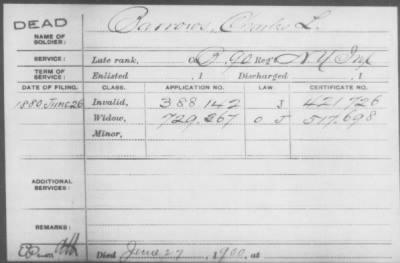 DEAD
NAME OF SOLDIER: Barrows, Charles L.
SERVICE: Late rank, Co B, 90 Reg't N.Y. Inf
TERM OF SERVICE: Enlisted , 1 Discharged , 1
DATE OF FILING. CLASS. APPLICATION NO. LAW. CERTIFICATE NO.
1880 June 26 Invalid, 388.142 J 421.726
Widow, 729.267 O J 517.698
Minor,
ADDITIONAL SERVICES:
REMARKS:
Died June 27, 1900, at